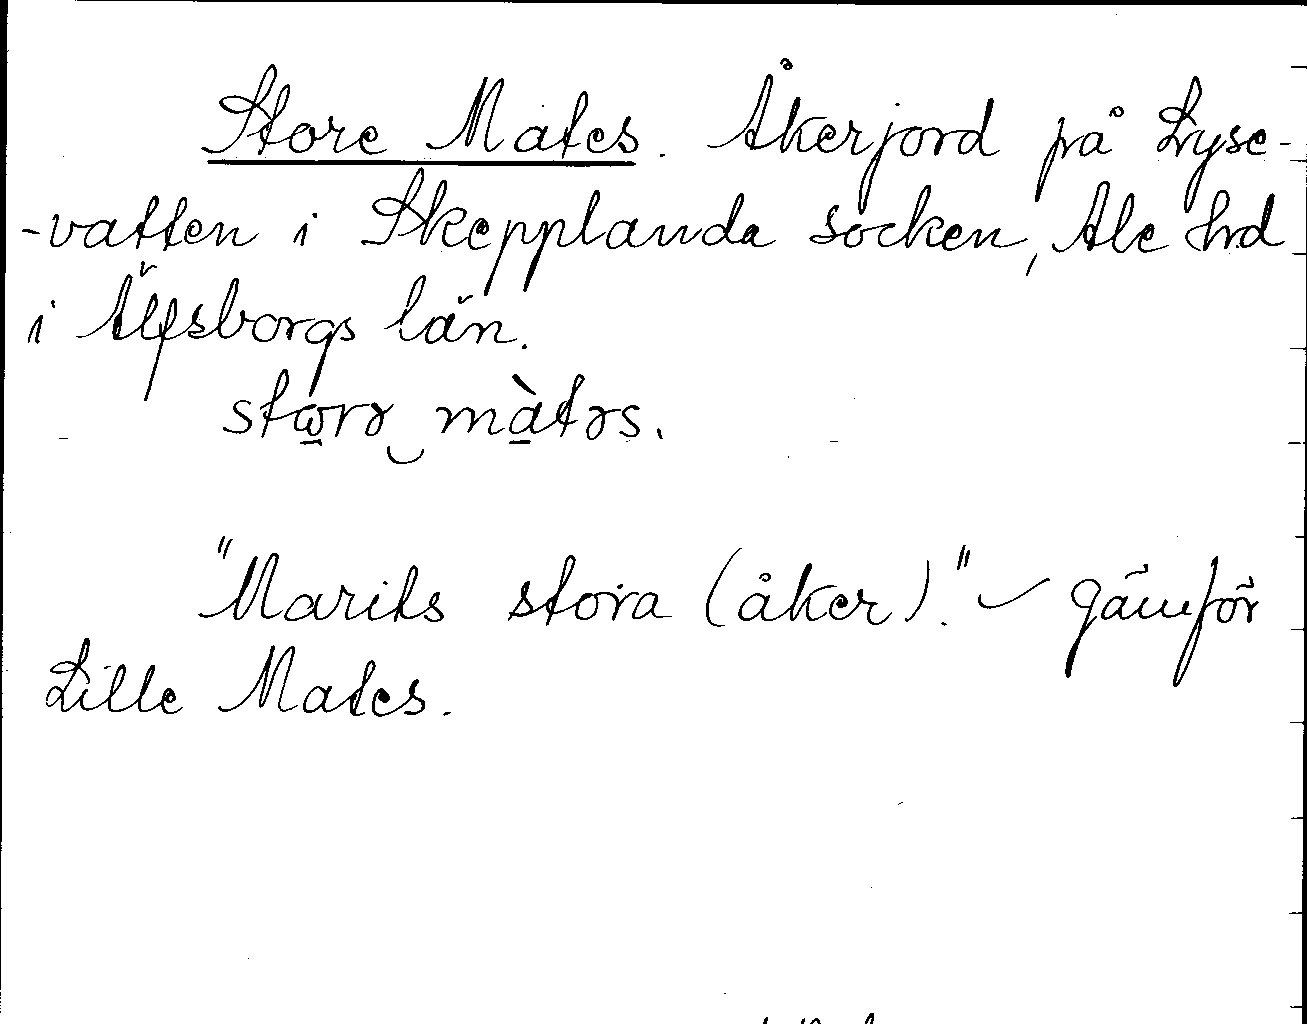 Store Mates. Åkerjord på Lyse-
-vatten i Skepplanda socken, Ale hrd
i Älfsborgs län.
stω̱rə‿mà̱təs.
"Marits stora (åker)." Jämför
Lille Mates.